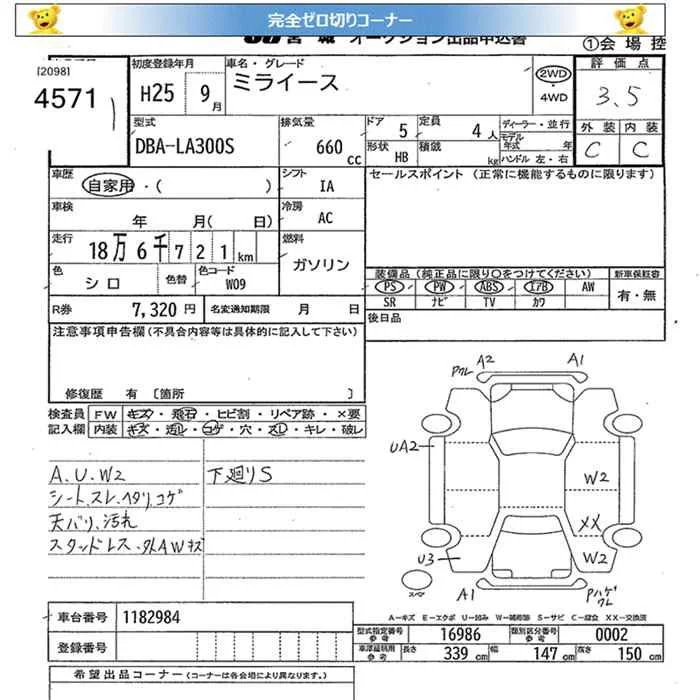 完全ゼロ切りコーナー
宮城 オークション出品申込書 ①会場控
[2098]
4571
初度登録年月 車名・グレード 2WD 評価点
H25 9月 ミライース 4WD 3.5
型式 排気量 ドア 5 定員 4人 ディーラー・並行 外装 内装
DBA-LA300S 660cc 形状 HB 積載 kg モデル年式 年式 ハンドル 左・右 C C
車歴 自家用・( ) シフト IA セールスポイント (正常に機能するものに限ります)
車検 年 月( 日) 冷房 AC
走行 18万6千721km 燃料 ガソリン
色 シロ 色替 色コード W09 装備品(純正品に限り○をつけてください) 新車保証書
PS PW ABS エアB AW 有・無
SR ナビ TV カワ
R券 7,320円 名変通知期限 月 日 後日品
注意事項申告欄(不具合内容等は具体的に記入して下さい)
修復歴 有 〔箇所 〕
検査員 FW キズ・飛石・ヒビ割・リペア跡・×要
記入欄 内装 キズ・汚レ・コゲ・穴・スレ・キレ・破レ
A.U.W2 下廻りS
シート、スレ、ヘタリ、コゲ
天バリ、汚れ
スタッドレス・外AWキズ
Pワレ A2 A1
UA2
W2
XX
U3 W2
スペア A1 Pハゲ
ワレ
A―キズ E―エクボ U―凹み W―補修跡 S―サビ C―腐食 XX―交換済
車台番号 1182984
登録番号
型式指定番号 参考 16986 類別区分番号 参考 0002
車渡組明用 参考 長さ 339cm 幅 147cm 高さ 150cm
希望出品コーナー(コーナーは各会場により異なります。)